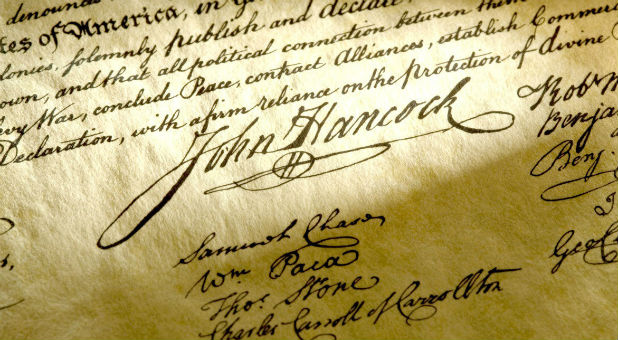 denounce
tes of America, in
lonies, solemnly publish and declare,
own, and that all political connection between them
evy War, conclude Peace, contract Alliances, establish Commer
Declaration, with a firm reliance on the protection of divine
John Hancock
Samuel Chase
Wm Paca
Thos Stone
Charles Carroll of Carrollton
Rob M
Benja
Benj.
Geo